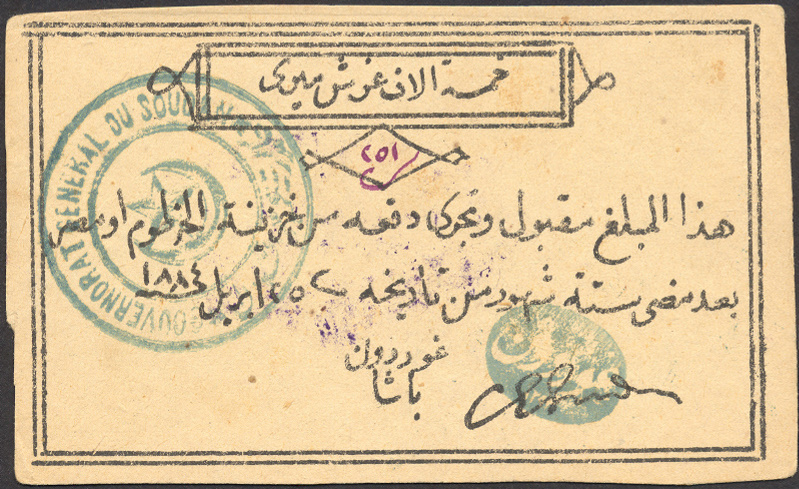 خمسة الاف غرش ميرى
٢٥١
هذا المبلغ مقبول ويجرى دفعه من خزينة الخرطوم او مصر
بعد مضى ستة شهور من تاريخه ٢٥ ابريل ١٨٨٤
غوردون
باشا
GOUVERNORAT GENERAL DU SOUDAN